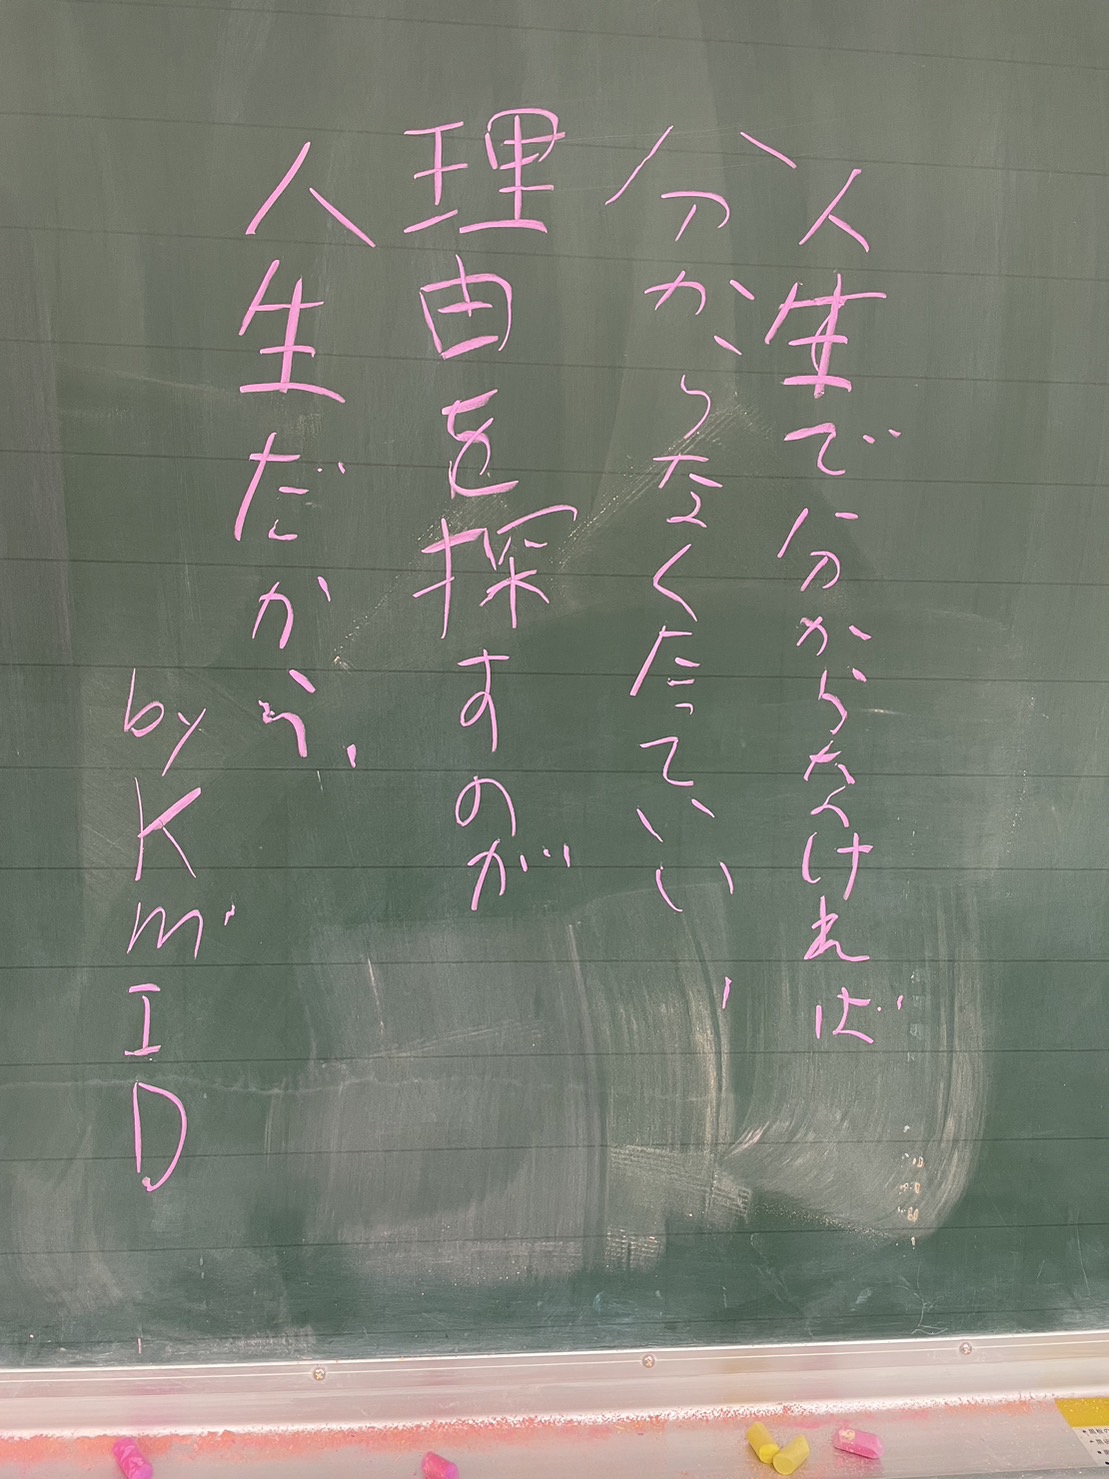 人生で分からなければ
分からなくたっていい
理由を探すのが
人生だから、
by KmID